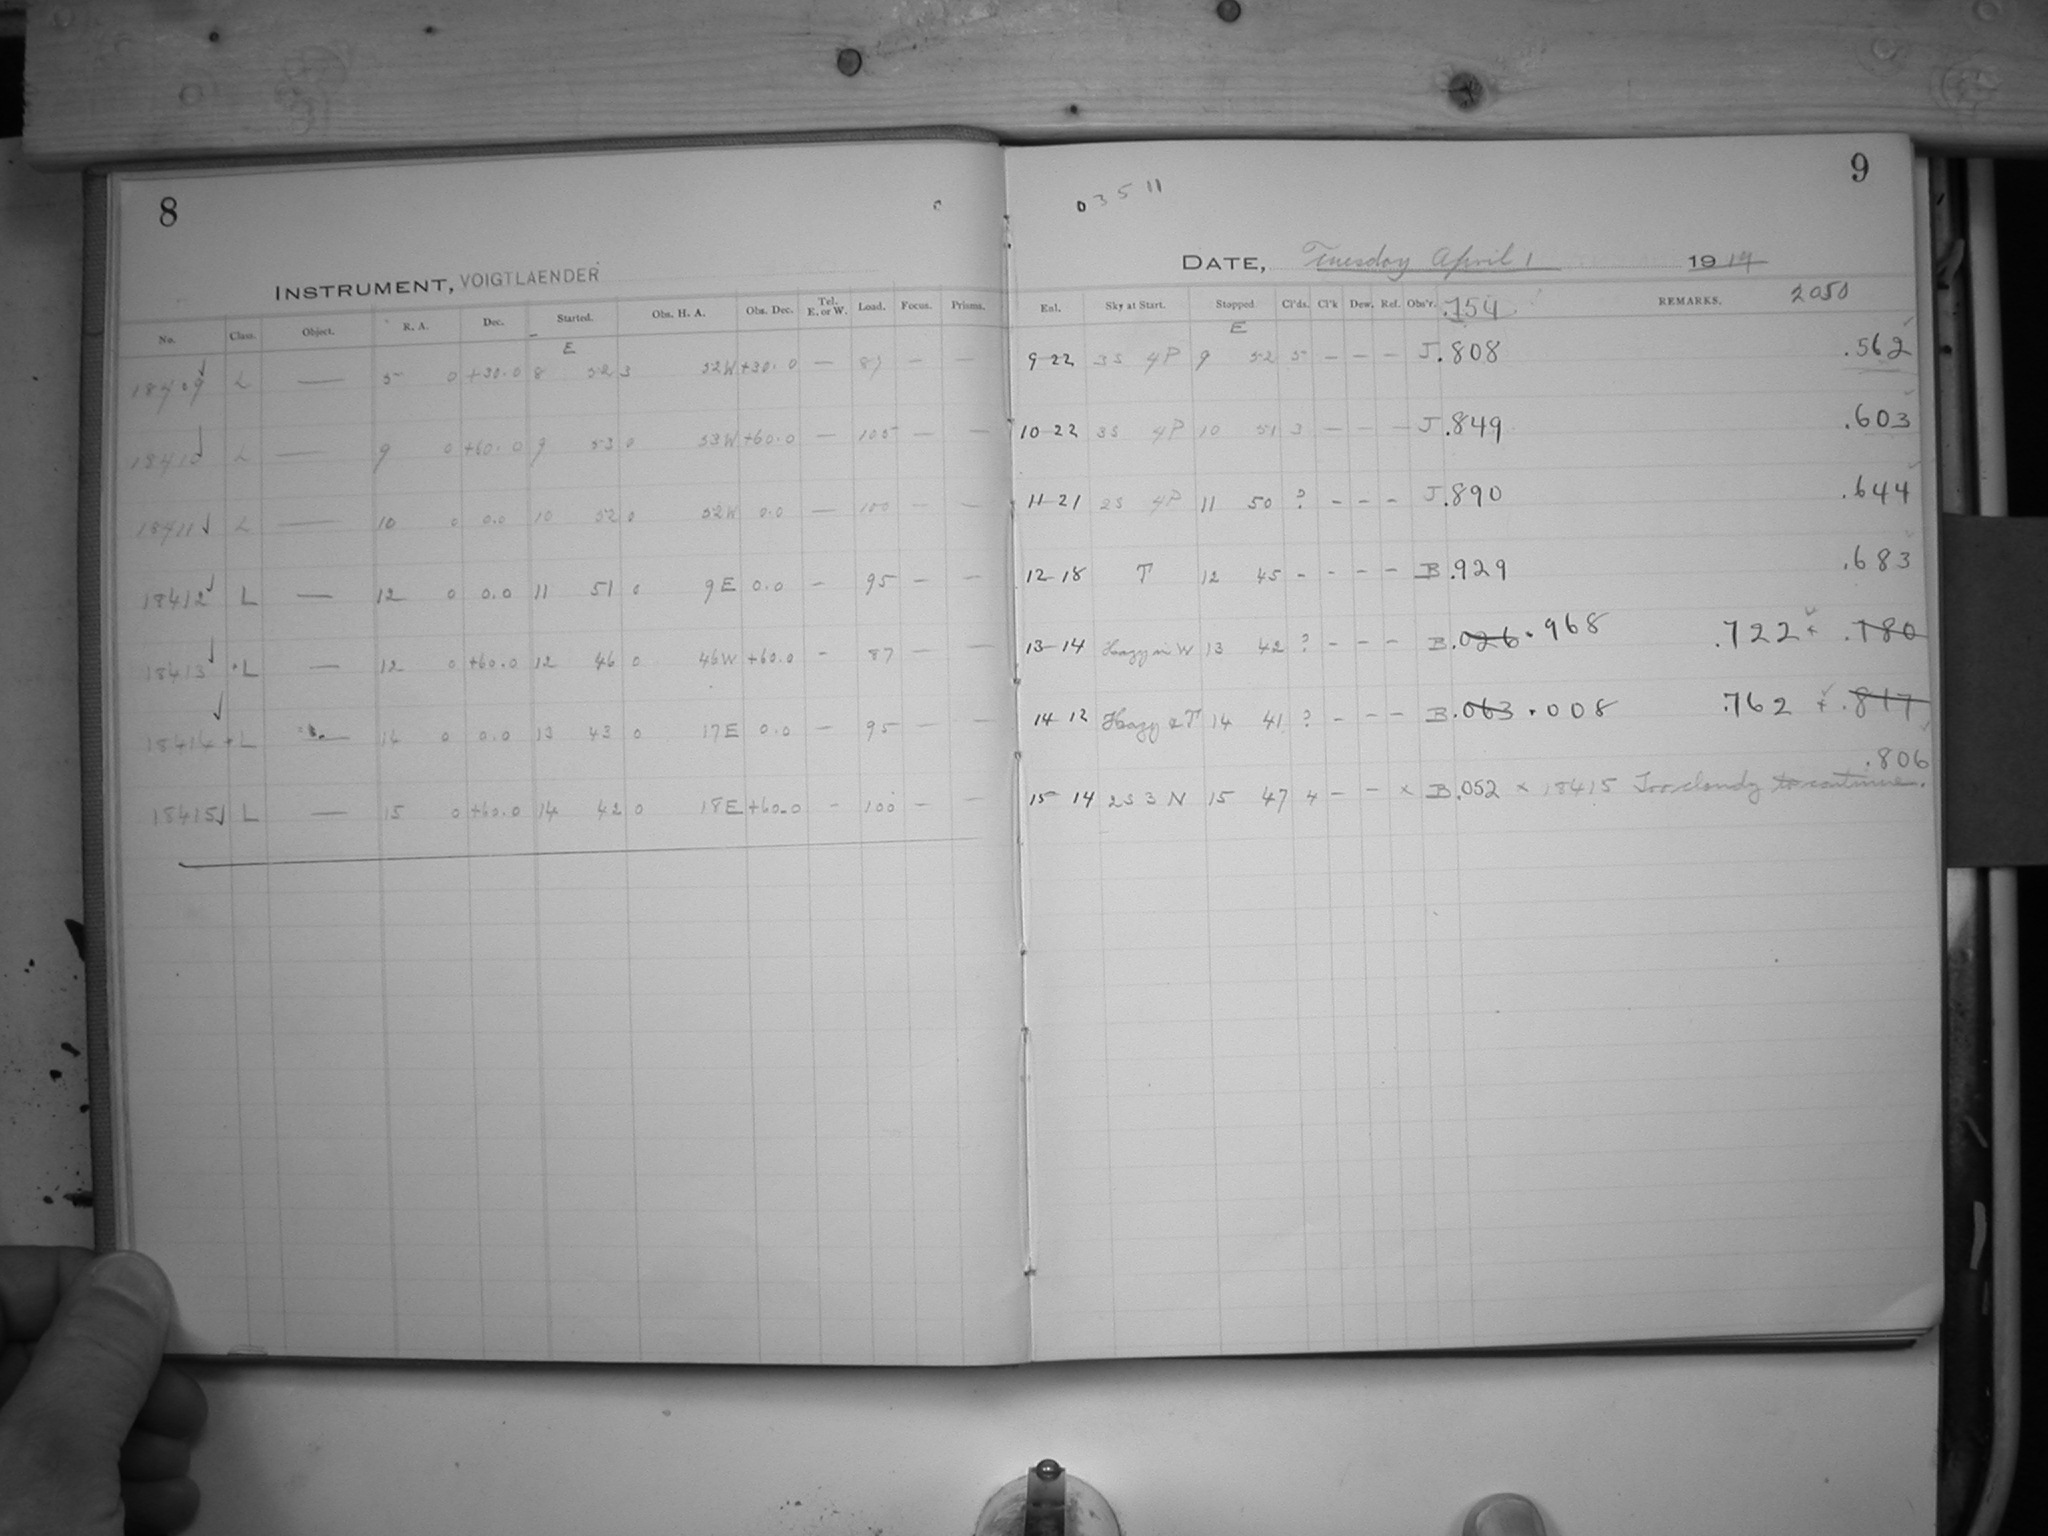 8
INSTRUMENT, VOIGTLAENDER
No. Class. Object. R. A. Dec. Started. Obs. H. A. Obs. Dec. Tel. E. or W. Load. Focus. Prisms.
E
18409 L — 5 0 +30.0 8 52 3 52W +30.0 — 87 — —
18410 L — 9 0 +60.0 9 53 0 53W +60.0 — 105 — —
18411 L — 10 0 0.0 10 52 0 52W 0.0 — 100 — —
18412 L — 12 0 0.0 11 51 0 9E 0.0 — 95 — —
18413 + L — 12 0 +60.0 12 46 0 46W +60.0 - 87 — —
18414 + L — 14 0 0.0 13 43 0 17E 0.0 — 95 — —
18415 L — 15 0 +60.0 14 42 0 18E +60.0 - 100 — —
9
03511
DATE, Tuesday April 1 1919
Enl. Sky at Start. Stopped. Cl'ds. Cl'k Dew. Ref. Obs'r. .754 REMARKS. 2050
E
9-22 3S 4P 9 52 5 - - - J .808 .562
10-22 3S 4P 10 51 3 - - - J .849 .603
11-21 2S 4P 11 50 ? - - - J .890 .644
12-18 T 12 45 - - - - B .929 .683
13-14 Hazy in W 13 42 ? - - - B .026 .968 .722 .780
14-12 Hazy & T 14 41 ? - - - B .063 .008 .762 .817
.806
15-14 2S 3N 15 47 4 - - × B .052 × 18415 Too cloudy to continue.